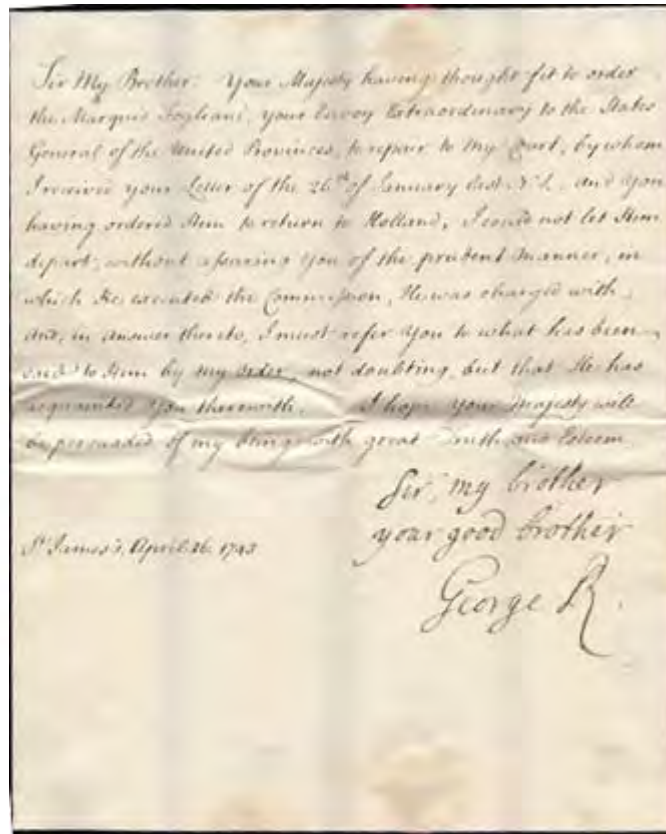 Sir My Brother. Your Majesty having thought fit to order
the Marquis Fogliani, your Envoy Extraordinary to the States
General of the United Provinces, to repair to My Court, by whom
I received your Letter of the 26th of January last N.S. and You
having ordered Him to return to Holland, I could not let Him
depart, without assuring You of the prudent Manner, in
which He executed the Commission, He was charged with,
and, in answer thereto, I must refer You to what has been
said to Him by my order, not doubting, but that He has
acquainted You therewith. I hope Your Majesty will
be persuaded of my being with great Truth and Esteem
Sir, my brother
your good brother
St James's, April 26. 1743
George R.